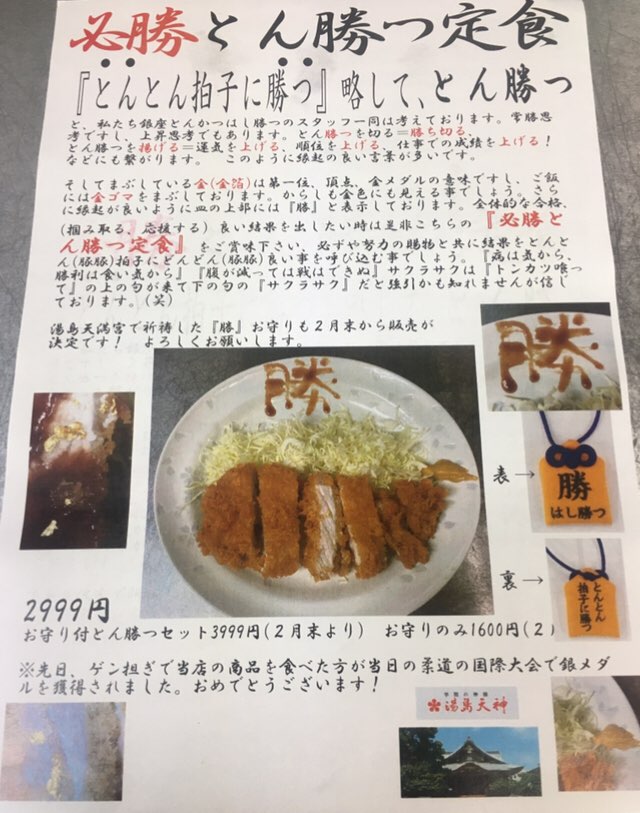 必勝とん勝つ定食
『とんとん拍子に勝つ』略して、とん勝つ
と、私たち銀座とんかつはし勝つのスタッフ一同は考えております。常勝思
考ですし、上昇思考でもあります。とん勝つを切る＝勝ち切る、
とん勝つを揚げる＝運気を上げる、順位を上げる、仕事での成績を上げる！
などにも繋がります。 このように縁起の良い言葉が多いです。
そしてまぶしている金(金箔)は第一位、頂点、金メダルの意味ですし、ご飯
には金ゴマをまぶしております。からしも金色にも見える事でしょう。さら
に縁起が良いように皿の上部には『勝』と表示しております。全体的な合格、
(掴み取る、応援する)良い結果を出したい時は是非こちらの『必勝と
ん勝つ定食』をご賞味下さい、必ずや努力の賜物と共に結果をとんと
ん(豚豚)拍子にどんどん(豚豚)良い事を呼び込む事でしょう。『病は気から、
勝利は食い気から』『腹が減っては戦はできぬ』サクラサクは『トンカツ喰っ
て』の上の句が来て下の句の『サクラサク』だと強引かも知れませんが信じ
ております。(笑)
湯島天満宮で祈祷した『勝』お守りも2月末から販売が
決定です！ よろしくお願いします。
勝
勝
表→
勝
はし勝つ
裏→
とんとん
拍子に勝つ
2999円
お守り付とん勝つセット3999円(2月末より) お守りのみ1600円(2)
※先日、ゲン担ぎで当店の商品を食べた方が当日の柔道の国際大会で銀メダ
ルを獲得されました。おめでとうございます！
学問の神様
湯島天神